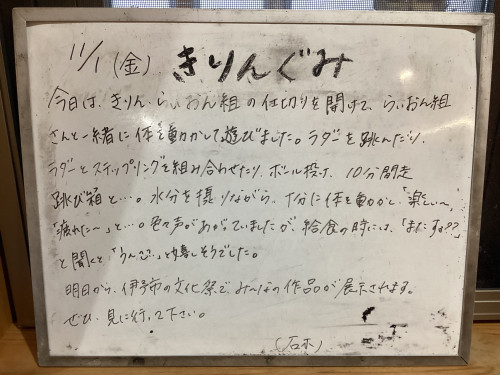 11/1 (金) きりんぐみ
今日は、きりん、らいおん組の仕切りを開けて、らいおん組
さんと一緒に体を動かして遊びました。ラダーを跳んだり、
ラダーとステップリングを組み合わせたり、ボール投げ、10分間走
跳び箱と…。水分を摂りながら、十分に体を動かし、「楽しい〜」
「疲れた〜」と…。色々声があがっていましたが、給食の時には、「またする??」
と聞くと、「うんっ!」と嬉しそうでした。
明日から、伊予市の文化祭で、み〜んなの作品が展示されます。
ぜひ、見に行って下さい。